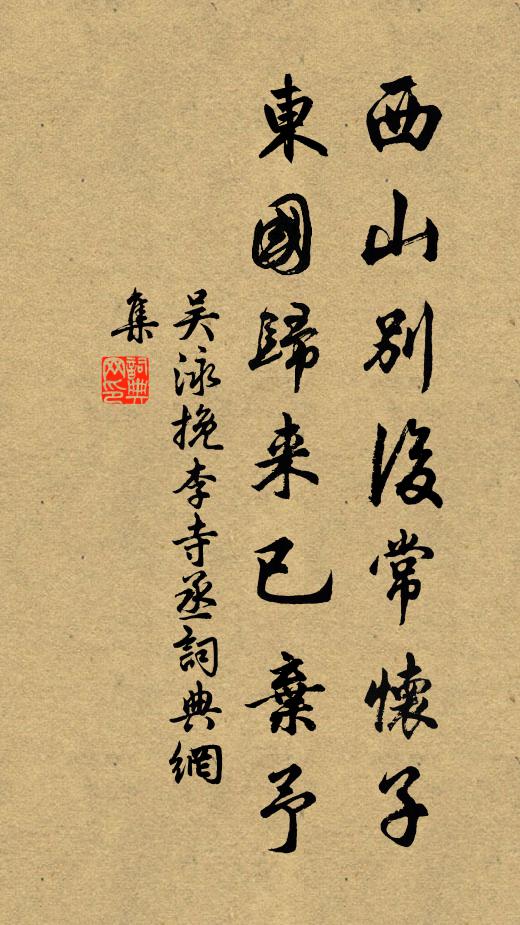 西山別後常懷子
東國歸来已棄予
吳泳挽李寺丞詞典網
集
詞典
网印